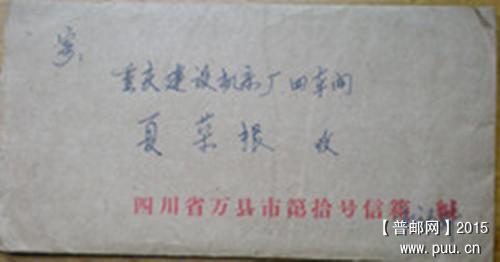 寄:
重庆建设机床厂四车间
夏菜根 收
四川省万县市第拾号信箱 缄
【普邮网】2015
www.puu.cn